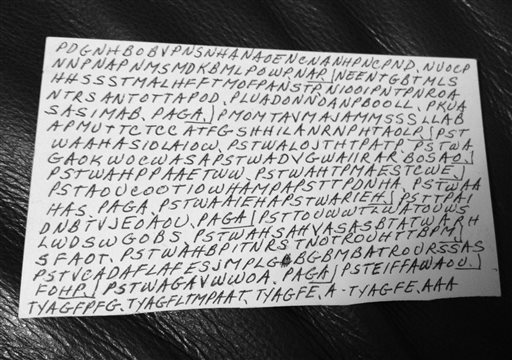 PDGNHBOBVPNSNHANAOENCNANHPNCPND. NUOCP
NNPNAPNMSMDKBMLPOWPNAP. NEENTGBTMLS
HHSSSTMALHFFTMOFPANSTP. NIOOIPNTPNROA
NTRSANTOTTAPOD. PLUADONNOANPBOOLL. PKUA
SASIMAB. PAGA. PMOMTAVMAJAMMSSSLLAB
APMUTTCTCCATFGSHHILANRNPHTAOLP. PST
WAAHASIOLAIOW. PSTWALOJTHTPATP. PSTWA
GAOKWOCWASAPSTWADVGWAIIRARBOSAO.
PSTWAHPPAAETWW. PSTWAHTPMAESTCWE.
PSTAOUCOOTIOWHAMPAPSTTPDNHA. PSTWAA
HAS. PAGA. PSTWAAIEHAPSTWARIEH. PSTTPAI
DNBTVJEOAOU. PAGA. PSTTOUWWTLWATOUWS
LWDSWGOBS. PSTWAHSAHVASASBTATWARH
SFAOT. PSTWAHBPITNRSTNOTROUHTTBPM.
PSTVCADAFLAFESJMPLG BGBMBATROURSSAS
FOHP. PSTWAGAVWWOA. PAGA. PSTEIFFAWAOU.
TYAGFPFG. TYAGFLTMPAAT. TYAGFE. A-TYAGFE. AAA